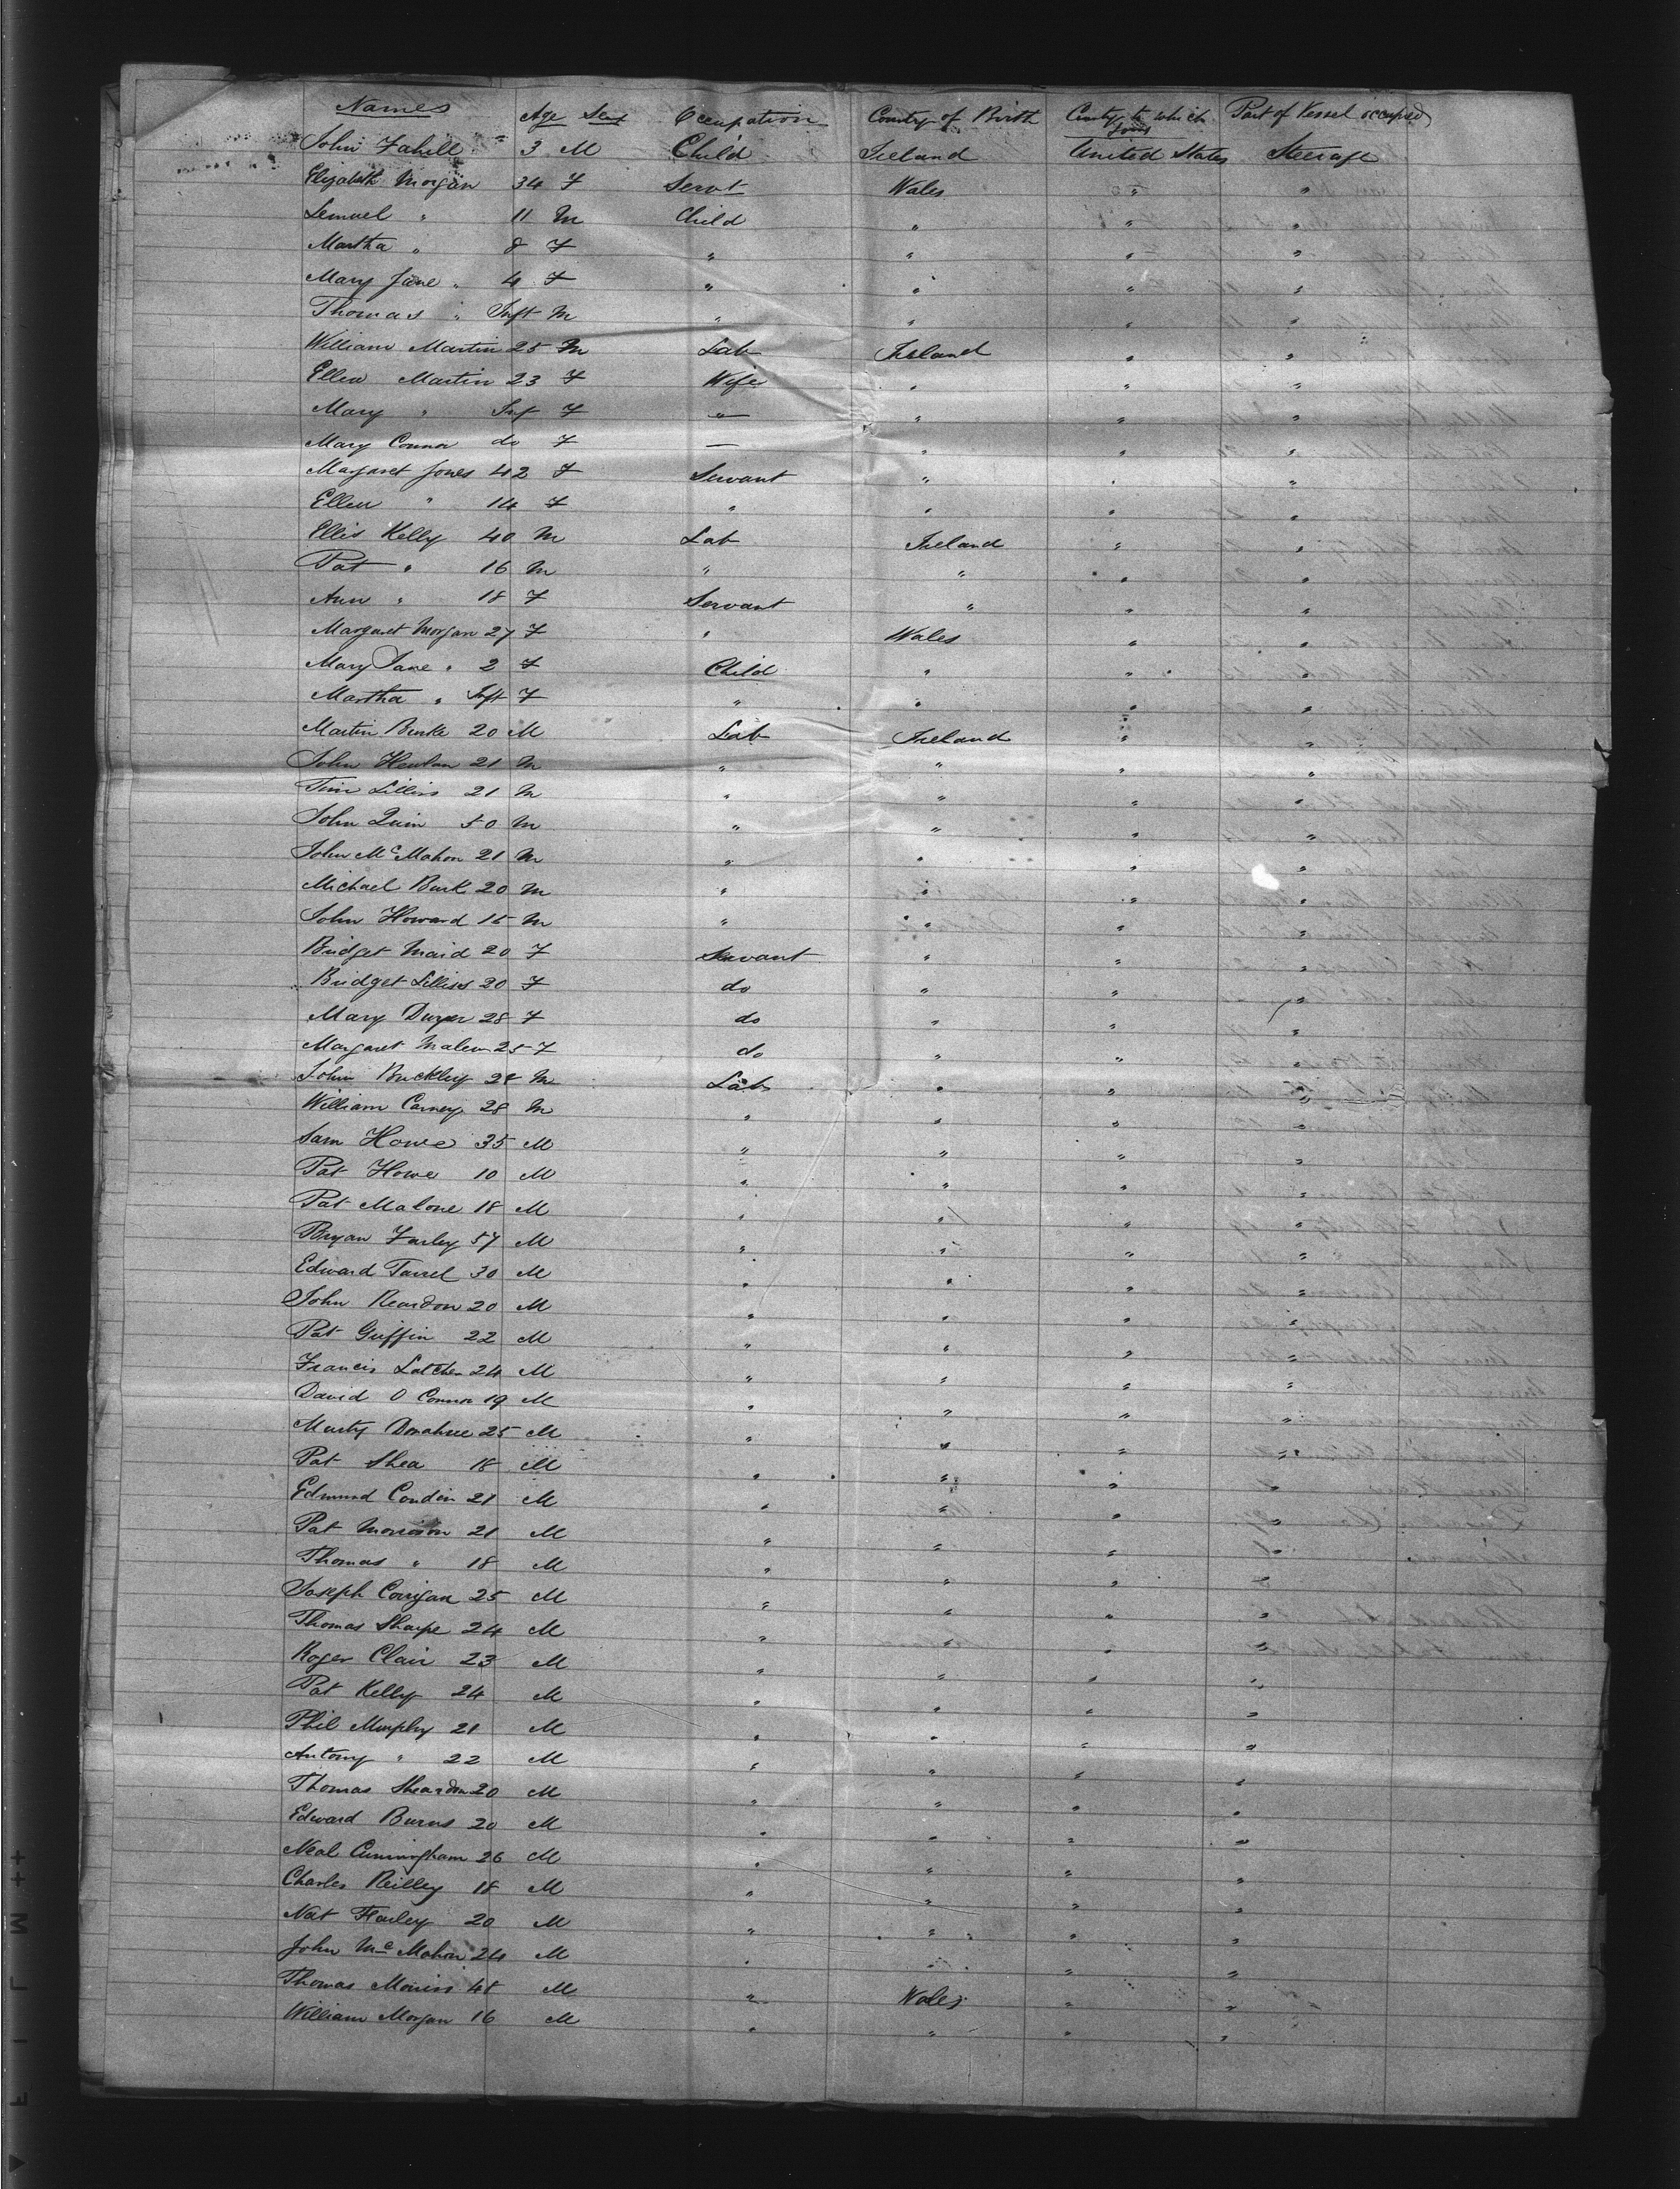 Names Age Sex Occupation Country of Birth Country to which going Part of Vessel occupied
John Fahill 3 M Child Ireland United States Steerage
Elizabeth Morgan 34 F Servt Wales " "
Lemuel " 11 M Child " " "
Martha " 8 F " " " "
Mary Jane " 4 F " " " "
Thomas " Inft M " " " "
William Martin 25 M Lab Ireland " "
Ellen Martin 23 F Wife " " "
Mary " Inf F " " " "
Mary Connor do F — " " "
Margaret Jones 42 F Servant " " "
Ellen " 14 F " " " "
Ellis Kelly 40 M Lab Ireland " "
Pat " 16 M " " " "
Ann " 18 F Servant " " "
Margaret Morgan 27 F " Wales " "
Mary Jane " 2 F Child " " "
Martha " Inft F " " " "
Martin Burke 20 M Lab Ireland " "
John 21 M " " " "
Tim Lillis 21 M " " " "
John Quin 50 M " " " "
John McMahon 21 M " " " "
Michael Burk 20 M " " " "
John Howard 15 M " " " "
Bridget Maid 20 F Servant " " "
Bridget Lilliss 20 F do " " "
Mary Dwyer 28 F do " " "
Margaret 25 F do " " "
John Buckley 28 M Lab " " "
William Carney 28 M " " " "
Sam Howe 35 M " " " "
Pat Howe 10 M " " " "
Pat Malone 18 M " " " "
Bryan Farley 57 M " " " "
Edward Tarrel 30 M " " " "
John Reardon 20 M " " " "
Pat Griffin 22 M " " " "
Francis 24 M " " " "
David O Connor 19 M " " " "
Marty Donahue 25 M " " " "
Pat Shea 18 M " " " "
Edmund Condin 21 M " " " "
Pat Morrison 21 M " " " "
Thomas " 18 M " " " "
Joseph Corrigan 25 M " " " "
Thomas Sharpe 24 M " " " "
Roger Clair 23 M " " " "
Pat Kelly 24 M " " " "
Phil Murphy 21 M " " " "
Antony " 22 M " " " "
Thomas Sheardon 20 M " " " "
Edward Burns 20 M " " " "
Neal Cuningham 26 M " " " "
Charles Reilley 18 M " " " "
Nat Farley 20 M " " " "
John McMahon 24 M " " " "
Thomas Morriss 45 M " Wales " "
William Morgan 16 M " " " "